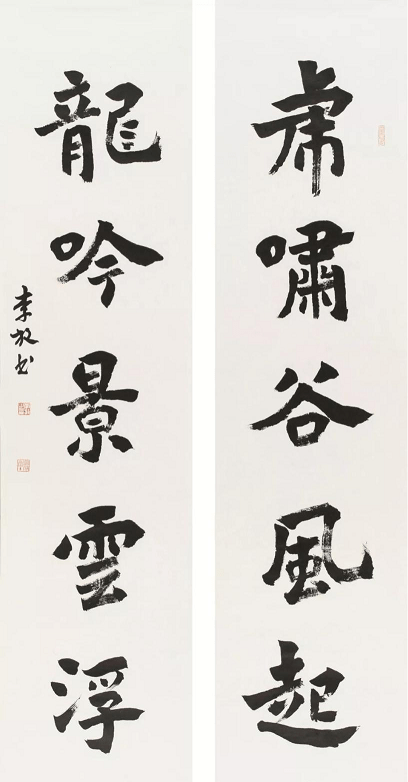 虎啸谷風起
龍吟景雲浮
李放书